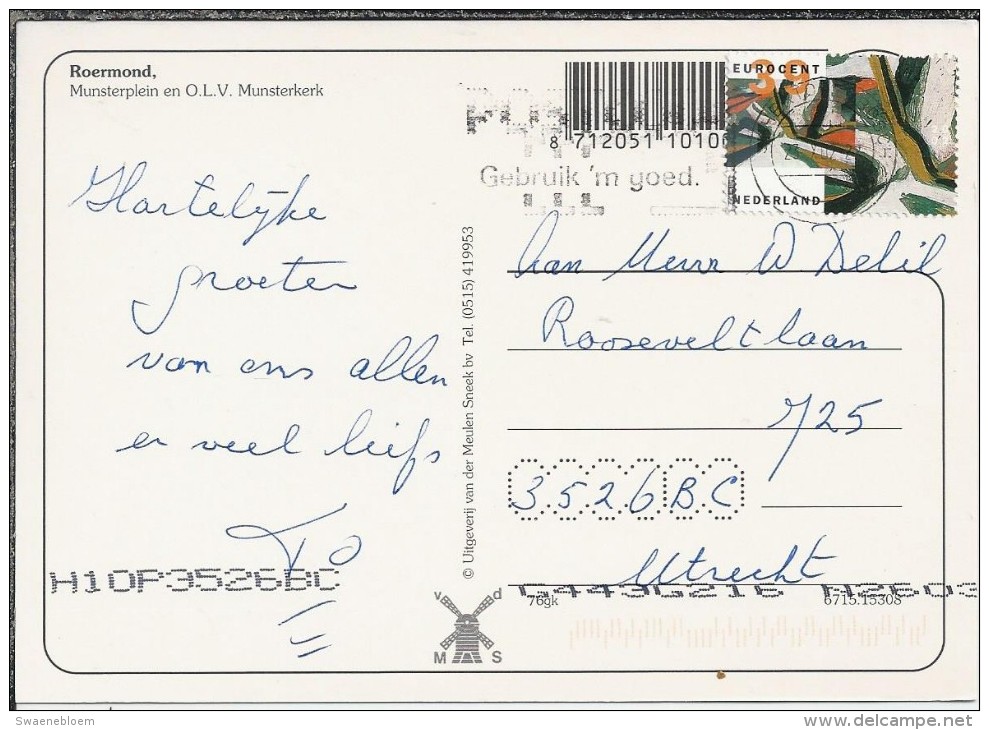 Roermond,
Munsterplein en O.L.V. Munsterkerk
Hartelijke
groeten
van ons allen
en veel liefs
To
H10P3526BC
© Uitgeverij van der Meulen Sneek bv Tel. (0515) 419953
v d
M S
8 712051 10100
Gebruik 'm goed.
EUROCENT
39
NEDERLAND
Aan Mevr W Delil
Rooseveltlaan
725
3526BC
Utrecht
76gk
6715.15308
Swaenebloem
www.delcampe.net